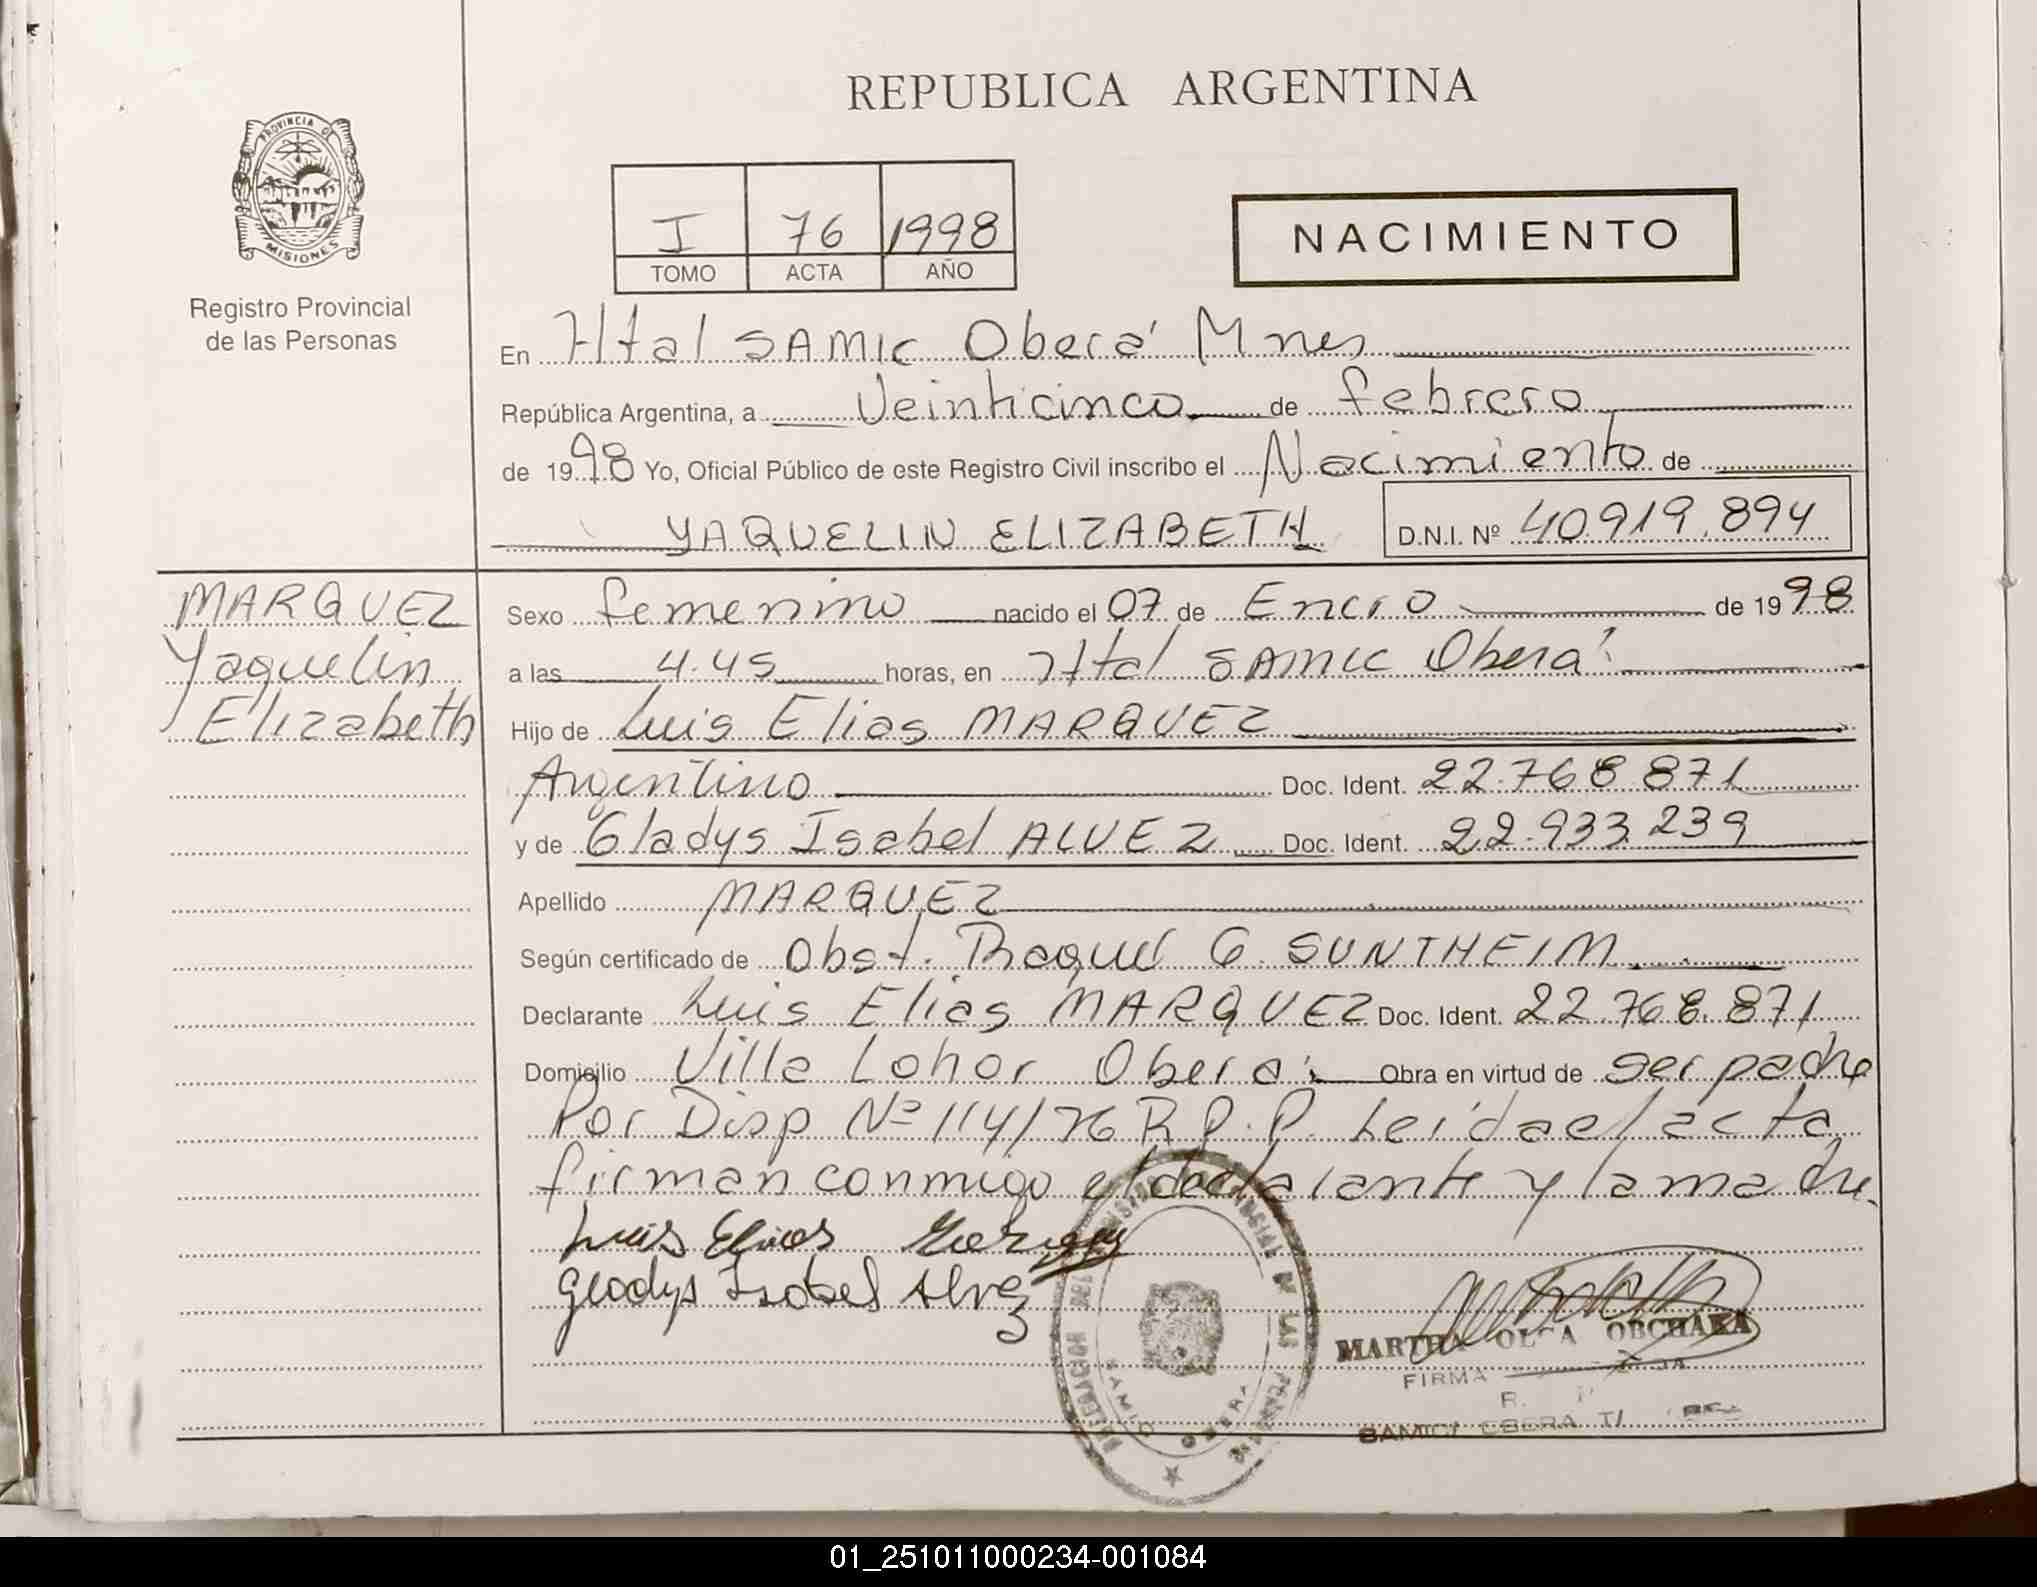 REPUBLICA ARGENTINA
PROVINCIA DE
MISIONES
Registro Provincial
de las Personas
I 76 1998
TOMO ACTA AÑO
NACIMIENTO
En Htal SAMIC Oberá Mnes
República Argentina, a Veinticinco de febrero
de 1998 Yo, Oficial Público de este Registro Civil inscribo el Nacimiento de
YAQUELIN ELIZABETH D.N.I. Nº 40.919.894
MARQUEZ
Yaquelin
Elizabeth
Sexo femenino nacido el 07 de Enero de 1998
a las 4.45 horas, en Htal SAMIC Oberá
Hijo de Luis Elias MARQUEZ
Argentino Doc. Ident. 22.768.871
y de Gladys Isabel ALVEZ Doc. Ident. 22.933.239
Apellido MARQUEZ
Según certificado de Obst. Raquel G. SUNTHEIM
Declarante Luis Elias MARQUEZ Doc. Ident. 22.768.871
Domicilio Villa Lohor Oberá Obra en virtud de ser padre
Por Disp Nº 114/76 R.P.P. Leída el acta
firman conmigo el declarante y la madre
Luis Elias Marquez
Gladys Isabel Alvez
DELEGACION DEL REGISTRO PROVINCIAL DE LAS PERSONAS
SAMIC OBERA
MARTHA OLGA OBCHAKA
FIRMA
SAMIC OBERA
01_251011000234-001084